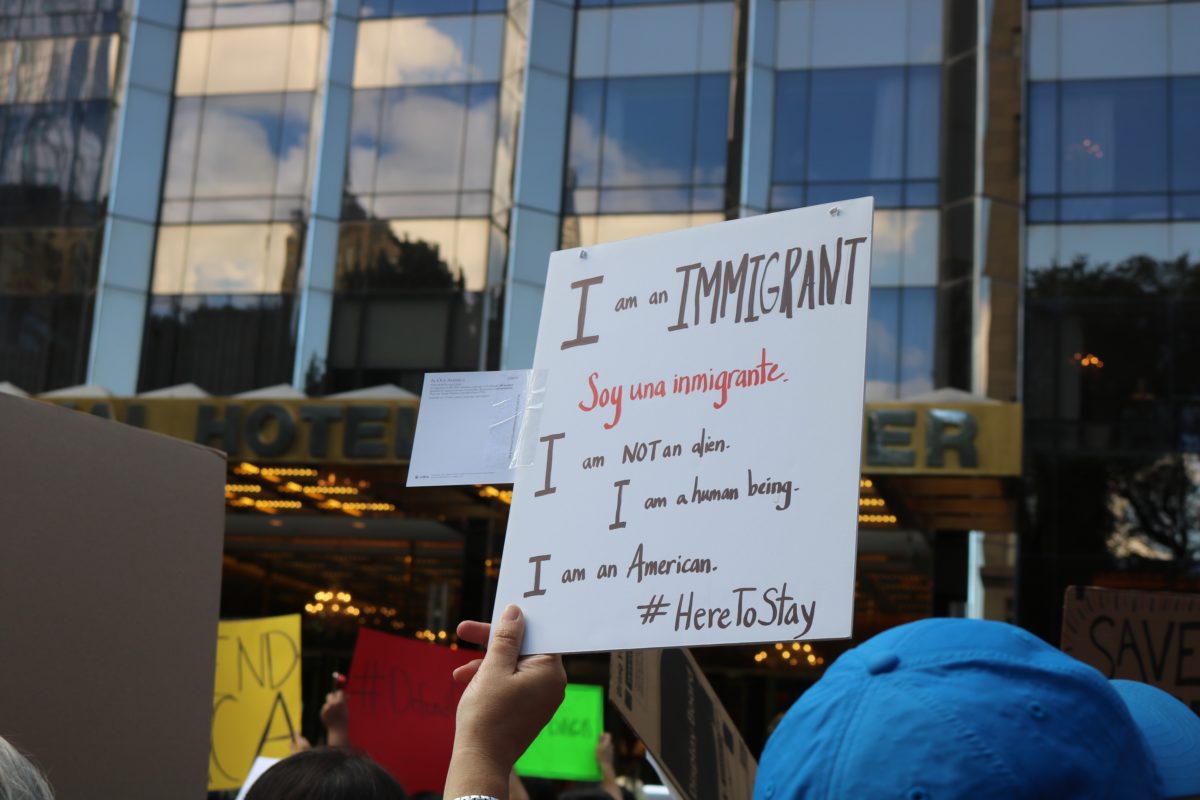 I am an IMMIGRANT
Soy una inmigrante.
I am NOT an alien.
I am a human being.
I am an American.
#HereToStay
HOTEL
ER
END
CA
SAVE